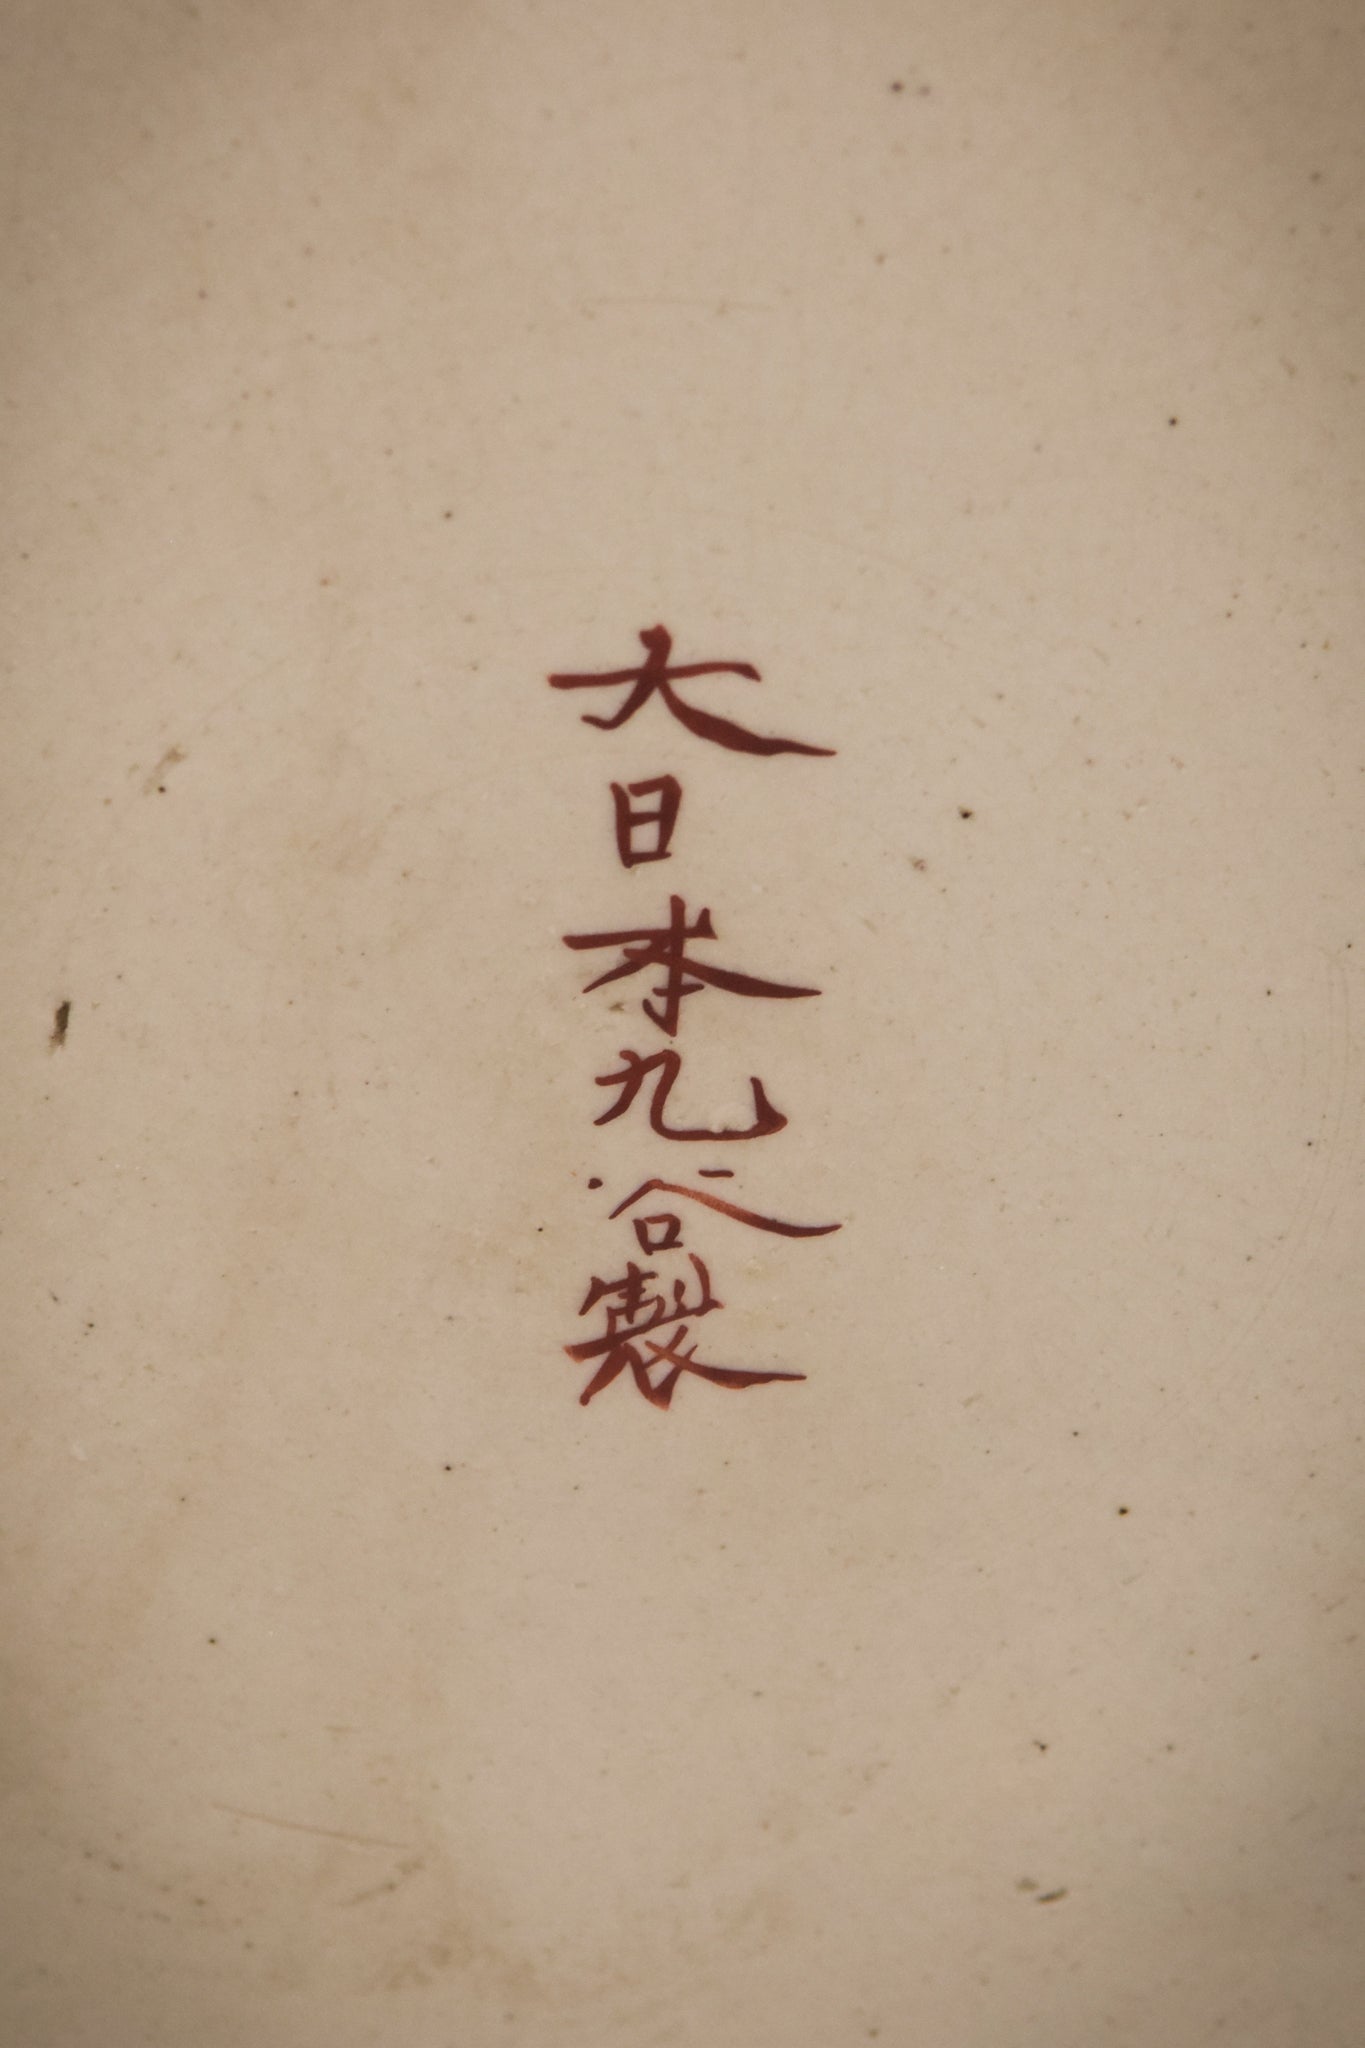 大日本九谷製